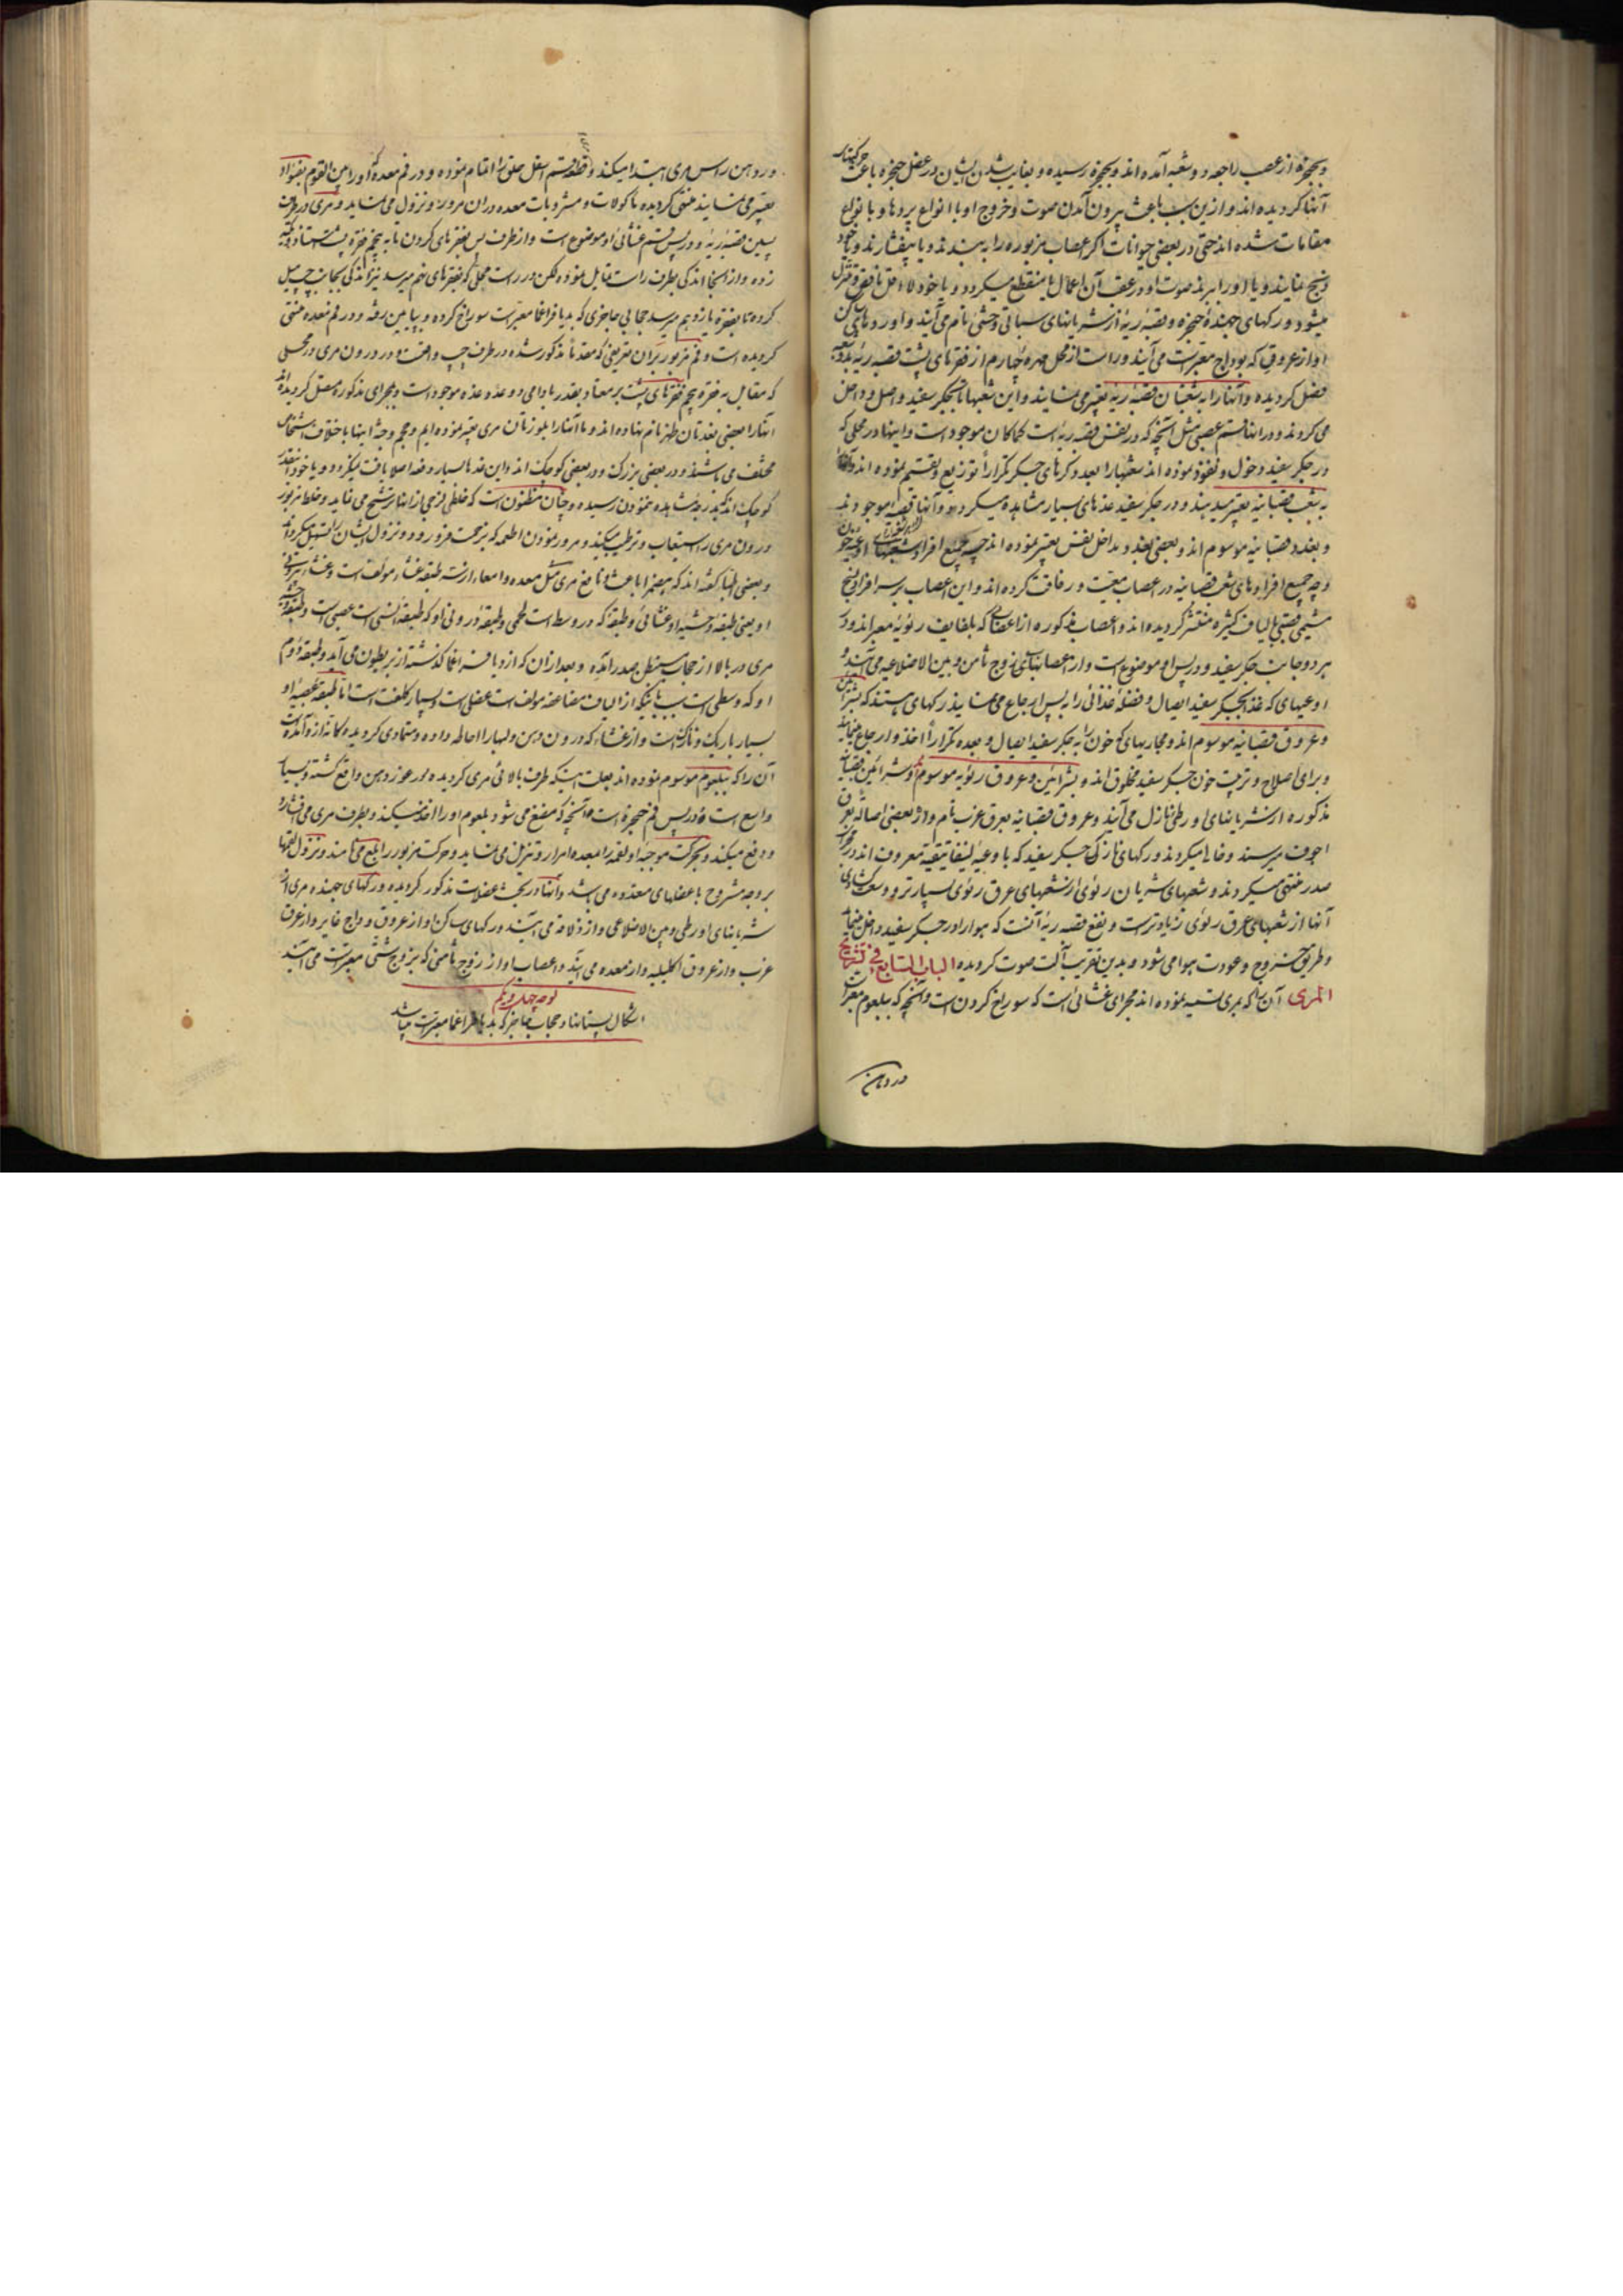 وبحنجره از عصب راجعه دو شعبه آمده اند وبحنجره رسیده و بغایب شدن ایشان در عضل حنجره باعث حرکتهای
آنها کردیده اند و ازین سبب باعث بیرون آمدن صوت و خروج او با انواع پردها و با انواع
مقامات شده اند حتی در بعضی حیوانات اکر اعصاب مزبوره را به بندند و یا بیفشارند و یا
ذبح نمایند و یا او را ببرند صوت او در عقب آن اعمال منقطع میکردد و یا خود لا اقل ناقص و متزلزل
میشود و رکهای جهندۀ حنجره و قصبه ریه از شریانهای سباتی وحشی نام می آیند و اوردهای ساکن
او از عروقی که بوداج معبر است می آیند و راست از محل مهرۀ چهارم از فقرهای پشت قصبه ریه
فصل کردیده و آنها را به شعبتان قصبه ریه تعبیر می نمایند و این شعبها تا بجکر سفید واصل و داخل
می کردند و در اینها قسم عصبی مثل آنچه که در نفس قصبه ریه است کماکان موجود است و اینها در محلی که
در جکر سفید دخول و نفوذ نموده اند شعبها را بعد وکرهای جکر تکراراً توزیع و تقسیم نموده اند
به شعب قصبانیه تعبیر میدهند و در جکر سفید غدهای بسیار مشاهده میکردد و آنها
و بغدد قصبانیه موسوم اند و بعضی بغدد بداخل نفس تعبیر نموده اند چه جمیع افراد شعبهای
وچه جمیع افرادهای شعب قصبانیه در اعصاب معیت و رفاقت کرده اند و این اعصاب بر سر افراد نسج
الیاف کثیره منتشر کردیده اند و اعصاب مذکوره از اعصابی که بلفایف رئویه معبراند و در
هر دو جانب جکر سفید و در پس او موضوع است و از اعصابهای زوج ثامن و بین الاضلاعیه می آیند و
اوعیهای که غذا بجکر سفید ایصال و فضله غذائی را به پس ارجاع می نمایند رکهای هستند که بشرائین
و عروق قصبانیه موسوم اند و مجاریهای که خون را به جکر سفید ایصال و بعده تکراراً اخذ و ارجاع
و برای اصلاح و تربیت خون جکر سفید مخلوق اند و بشرائین و عروق رئویه موسوم و شرائین قصبانیه
مذکوره از شریانهای اورطی نازل می آیند و عروق قصبانیه بعرق عزب نام و از بعضی اصالة بعرق
اجوف میرسند و میکردند و رکهای نازک جکر سفید که با وعیۀ لینفاتیقیه معروف اند در
صدر منتهی میکردند و شعبهای شریان رئوی از شعبهای عرق رئوی بسیار تر و وسعت
آنها از شعبهای عرق رئوی زیادتر است و نفع قصبه ریه آنست که هوا را در جکر سفید داخل
و طریق خروج و عودت هوا می شود و بدین تقریب آلت صوت کردیده الباب السابع فی تشریح
المری آن را که بمری تسمیه نموده اند مجرای غشائی است که سوراخ کردن است و آنچه که ببلعوم معبر است
در دهن
در دهن راس مری ابتدا میکند و قسم اسفل حلق را اتمام نموده و در فم معده که او را بین القوم بفؤاد
تعبیر می نمایند منتهی کردیده ماکولات و مشروبات معده در ان مرور و نزول می نماید و مری در
پسین قصبه ریه و در پس قسم غشائی او موضوع است و از طرف پس بفقرهای کردن تا به پنجم فقره پشت
زده و از انجا اندکی بطرف راست مایل نموده و لکن در راست محلی که بفقرهای نهم میرسد نیز اندکی بجانب چپ میل
کرده تا بفقره یازدهم میرسد حجابی حاجزی که بدیافراغما معبر است سوراخ کرده و بپایین رفته و در فم معده منتهی
کردیده است و فم مزبور بران تعریفی که مقدماً مذکور شده در طرف چپ واقعست و در درون مری در محلی
که مقابل به فقره پنجم فقرهای پشت بر معتاد بقدر بادامی دو عدد غده موجود است و بمجرای مذکور متصل کردیده اند
انها را بعضی بغدتان ظهر نام نهاده اند و ما انها را بلوزتان مری تعبیر نموده ایم و حجم و جثه اینها باختلاف اشخاص
مختلف می باشند و در بعضی بزرک و در بعضی کوچک اند و این غدها بسیار دفعه اصلا یافت نیکردد و یا خود انقدر
کوچک اند که بدرجه مشاهده نمودن نرسیده و چنان مظنون است که خلطی لزجی از انها ترشح می نماید و خلط مزبور
درون مری را استیعاب و ترطیب میکند و مرور نمودن اطعمه که بزحمت فرو رود و نزول ایشان را تسهیل میکرداند
و بعضی اطبا کفته اند که هضم را باعث و نافع مری مثل معده و امعاء از سه طبقه غشاء مولف است و غشاء بیرونی
او یعنی طبقه وحشیه او غشائی و طبقه که در وسط است لحمی و طبقه درونی او که طبقه انسی است عصبی است
مری در بالا از حجاب مستبطن صدر آمده و بعد ازان که از دیافراغما کذشته از بریطون می آید و طبقه دوم
او که وسطی است بسبب اینکه از الیاف مضاعفه مولف است عضلی است و بسیار کلفت است اما طبقه عصبیه او
بسیار باریک و نازک است و از غشاء که درون دهن و لبها را احاطه داده و متمادی کردیده کانه از و آمده است
آن را که ببلعوم موسوم نموده اند بعلت اینکه طرف بالائی مری کردیده در غور دهن واقع کشته و بسیار
واسع است و در پس فم حنجره است و آنچه که مضغ می شود بلعوم او را اخذ میکند و بطرف مری می فشارد
و دفع میکند و بحرکت موجبه او لقمه را بمعده امرار و تنزیل می نماید و حرکت مزبور را بلع می نامند و نزول لقمها
بر وجه مشروح با عضلهای معدوده می باشد و انها در بحث عضلات مذکور کردیده و رکهای جهنده مری از
شریانهای اورطی و بین الاضلاعی و از ذلاقه می آیند و رکهای ساکن او از عروق وداج غایر و از عرق
عزب و از عروق اکلیلیه و از معده می آیند و اعصاب او از زوج ثامنی که بزوج ششی معبر است می آیند
لوحه چهل ویکم
اشکال پستانها و حجاب حاجز که بدیافراغما معبر است میباشد